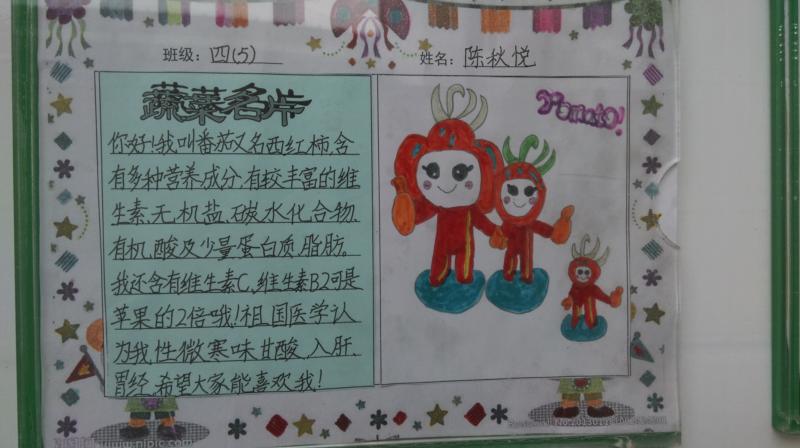 班级：四(5)
姓名：陈秋悦
蔬菜名片
Tomato!
你好！我叫番茄又名西红柿，含
有多种营养成分，有较丰富的维
生素、无机盐、碳水化合物、
有机酸及少量蛋白质、脂肪。
我还含有维生素C、维生素B2可是
苹果的2倍哦！祖国医学认
为我，性微寒味甘酸，入肝、
胃经，希望大家能喜欢我！